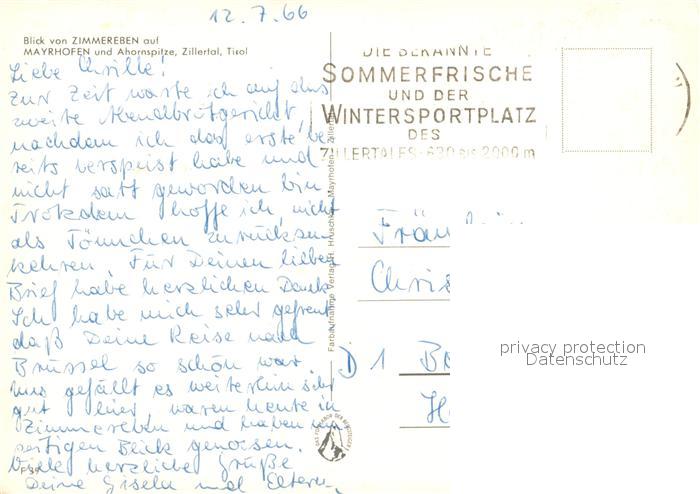 12.7.66
Blick von ZIMMEREBEN auf
MAYRHOFEN und Ahornspitze, Zillertal, Tirol
Liebe Chrille!
Zur Zeit warte ich auf das
zweite Abendbrotgericht,
nachdem ich das erste be-
reits verspeist habe und
nicht satt geworden bin.
Trotzdem hoffe ich, nicht
als Tönnchen zurückzu-
kehren. Für Deinen lieben
Brief habe herzlichen Dank.
Ich habe mich sehr gefreut
daß Deine Reise nach
Brüssel so schön war.
Uns gefällt es weiterhin sehr
gut hier, waren heute in
Zimmereben und haben
seitigen Blick genossen.
Viele herzliche Grüße
Deine Gisela und Eltern.
F 39
Farbaufnahme Verlag H. Hruschka, Mayrhofen - Zillertal
DIE BEKANNTE
SOMMERFRISCHE
UND DER
WINTERSPORTPLATZ
DES
ZILLERTALES - 630 BIS 2000 m
Fräu
Chris
D 1 B
H
privacy protection
Datenschutz